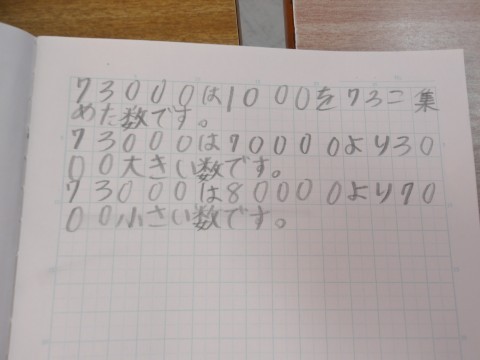 73000は1000を73こ集
めた数です。
73000は70000より30
00大きい数です。
73000は80000より70
00小さい数です。